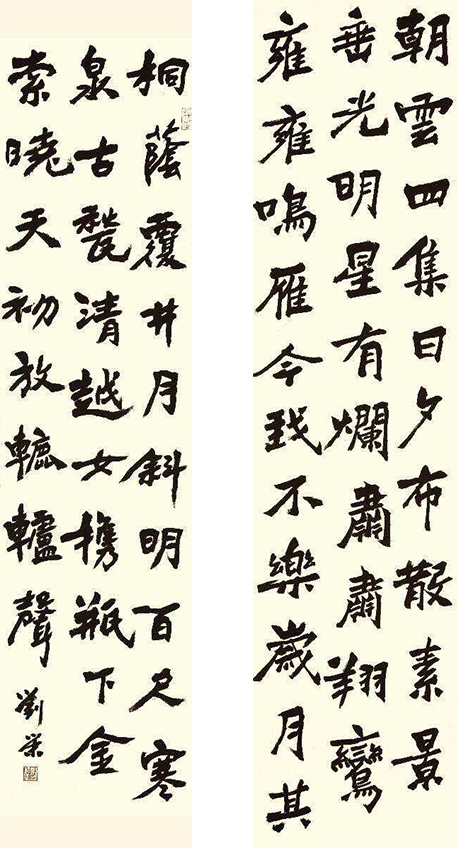 朝雲四集日夕布散素景
垂光明星有爛肅肅翔鸞
雍雍鳴雁今我不樂歲月其
桐蔭覆井月斜明百尺寒
泉古甃清越女攜瓶下金
索曉天初放轆轤聲
劉